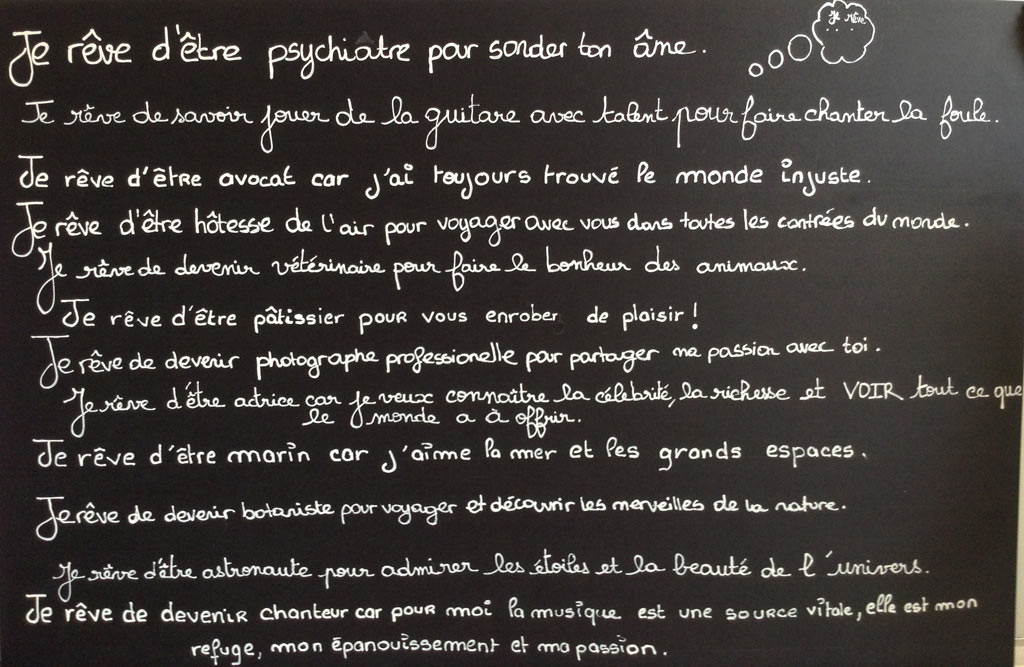 Je rêve
Je rêve d'être psychiatre pour sonder ton âme.
Je rêve de savoir jouer de la guitare avec talent pour faire chanter la foule.
Je rêve d'être avocat car j'ai toujours trouvé le monde injuste.
Je rêve d'être hôtesse de l'air pour voyager avec vous dans toutes les contrées du monde.
Je rêve de devenir vétérinaire pour faire le bonheur des animaux.
Je rêve d'être pâtissier pour vous enrober de plaisir !
Je rêve de devenir photographe professionelle pour partager ma passion avec toi.
Je rêve d'être actrice car je veux connaître la célébrité, la richesse et VOIR tout ce que
le monde a à offrir.
Je rêve d'être marin car j'aime la mer et les grands espaces.
Je rêve de devenir botaniste pour voyager et découvrir les merveilles de la nature.
Je rêve d'être astronaute pour admirer les étoiles et la beauté de l'univers.
Je rêve de devenir chanteur car pour moi la musique est une source vitale, elle est mon
refuge, mon épanouissement et ma passion.